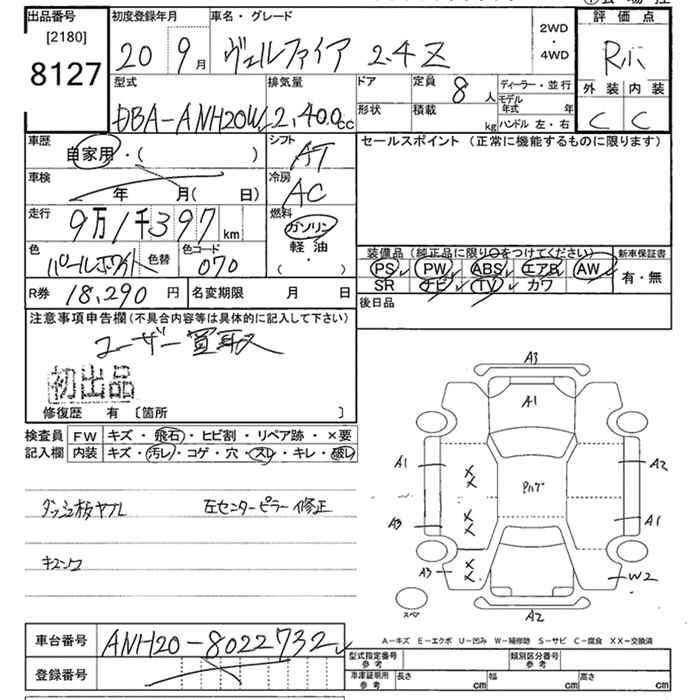 出品番号 初度登録年月 車名・グレード 評価点
[2180]
8127 20 9月 ヴェルファイア 2.4 Z 2WD・4WD R
型式 排気量 ドア 定員 8人 ディーラー・並行 外装 内装
DBA-ANH20W 2,400cc 形状 積載 kg モデル年式 年 C C
ハンドル 左・右
車歴 自家用・( ) シフト AT セールスポイント (正常に機能するものに限ります)
車検 年 月( 日) 冷房 AC
走行 9万1千397km 燃料 ガソリン
軽油
( ・ )
色 パールホワイト 色替 色コード 070
装備品 (純正品に限り○をつけてください) 新車保証書
PS PW ABS エアB AW 有・無
SR ナビ TV カワ
R券 18,290円 名変期限 月 日 後日品
注意事項申告欄(不具合内容等は具体的に記入して下さい)
ユーザー買取
初出品
修復歴 有 〔箇所 〕
検査員 FW キズ・飛石・ヒビ割・リペア跡・×要
記入欄 内装 キズ・汚レ・コゲ・穴・スレ・キレ・破レ
ダッシュ板ヤブレ 左センターピラー修正
A3
A1
A1 A2
××
A3 A1
××
A3 ×× W2
スペア
A2
A-キズ E-エクボ U-凹み W-補修跡 S-サビ C-腐食 XX-交換済
車台番号 ANH20-8022732
登録番号
型式指定番号 参考 類別区分番号 参考
車庫証明用 参考 長さ cm 幅 cm 高さ cm